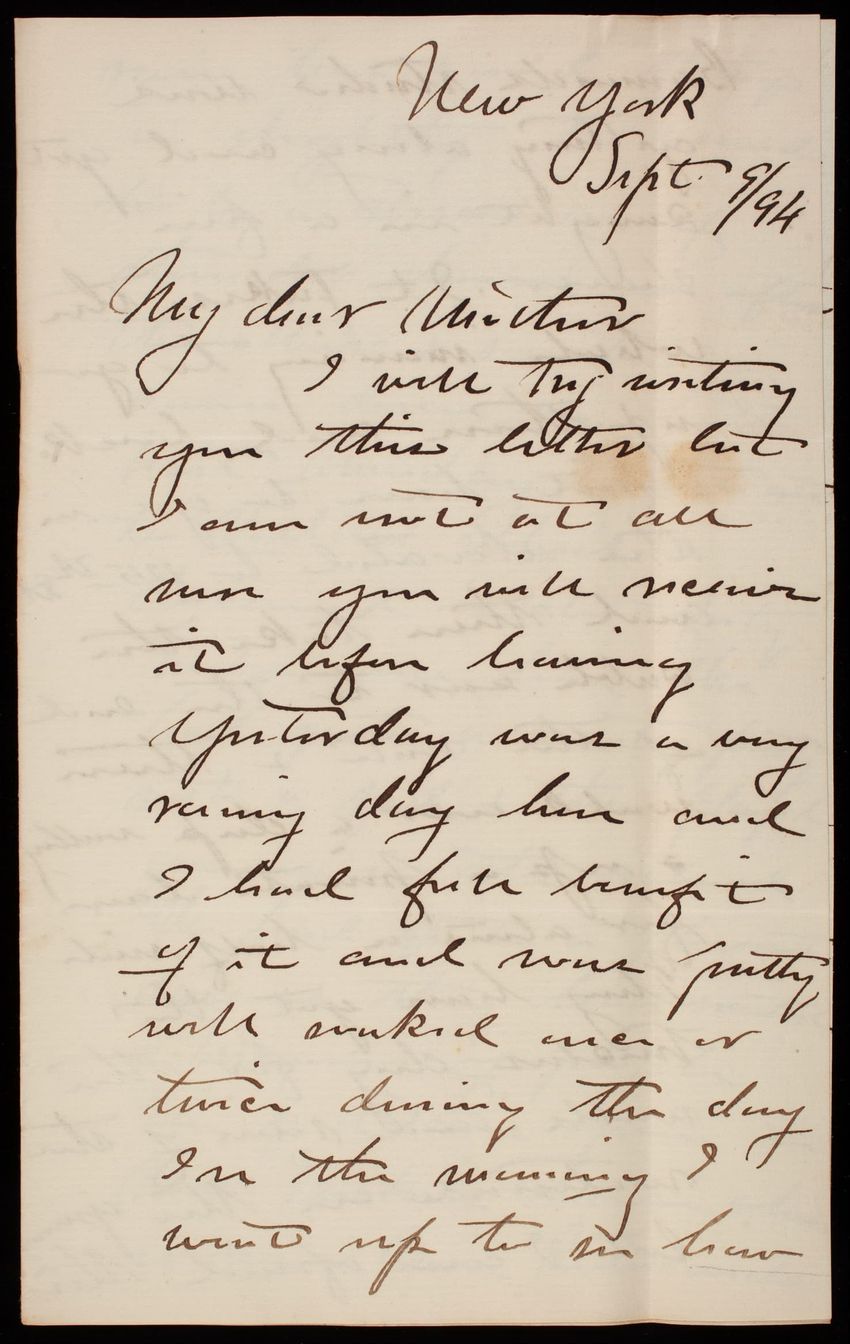 New York
Sept 9/94
My dear Mother
I will try writing
you this letter but
I am not at all
sure you will receive
it before leaving
Yesterday was a very
rainy day here and
I had full benefit
of it and was pretty
well soaked once or
twice during the day
In the morning I
went up to see how